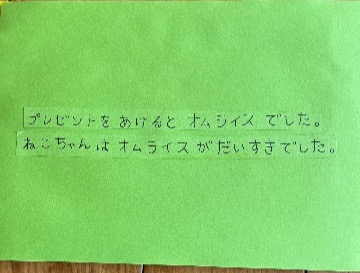 プレゼントをあけると オムライス でした。
ねこちゃんは オムライス が だいすきでした。